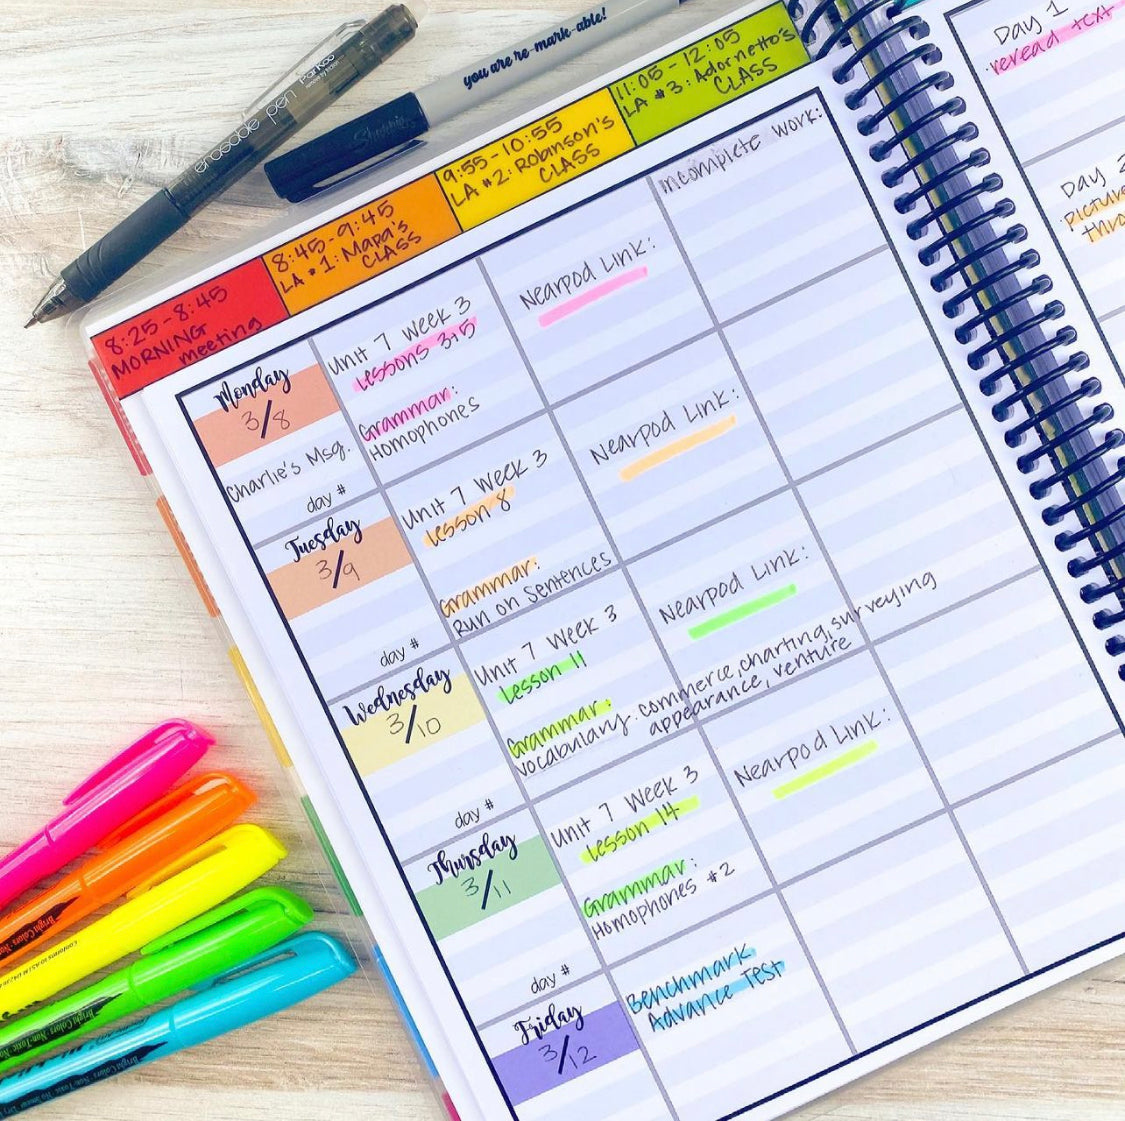 erasable pen ParKoo
you are re-mark-able!
Sharpie
8:25-8:45
MORNING
meeting
8:45-9:45
LA #1: Mapa's
CLASS
9:55-10:55
LA #2: Robinson's
CLASS
11:05-12:05
LA #3: Adornetto's
CLASS
Monday
3/8
Charlie's Msg.
day #
Unit 7 Week 3
Lessons 3+5
Grammar:
Homophones
Nearpod Link:
Incomplete Work:
Tuesday
3/9
day #
Unit 7 Week 3
Lesson 8
Grammar:
Run on Sentences
Nearpod Link:
Wednesday
3/10
day #
Unit 7 Week 3
Lesson 11
Grammar:
Vocabulary: commerce, charting, surveying
appearance, venture
Nearpod Link:
Thursday
3/11
day #
Unit 7 Week 3
Lesson 14
Grammar:
Homophones #2
Nearpod Link:
Friday
3/12
Benchmark
Advance Test
Day 1
reread text
Day
picture
thro
Bright Colors Non
Bright Colors Non-Toxic No
Bright Colors Non-Toxic